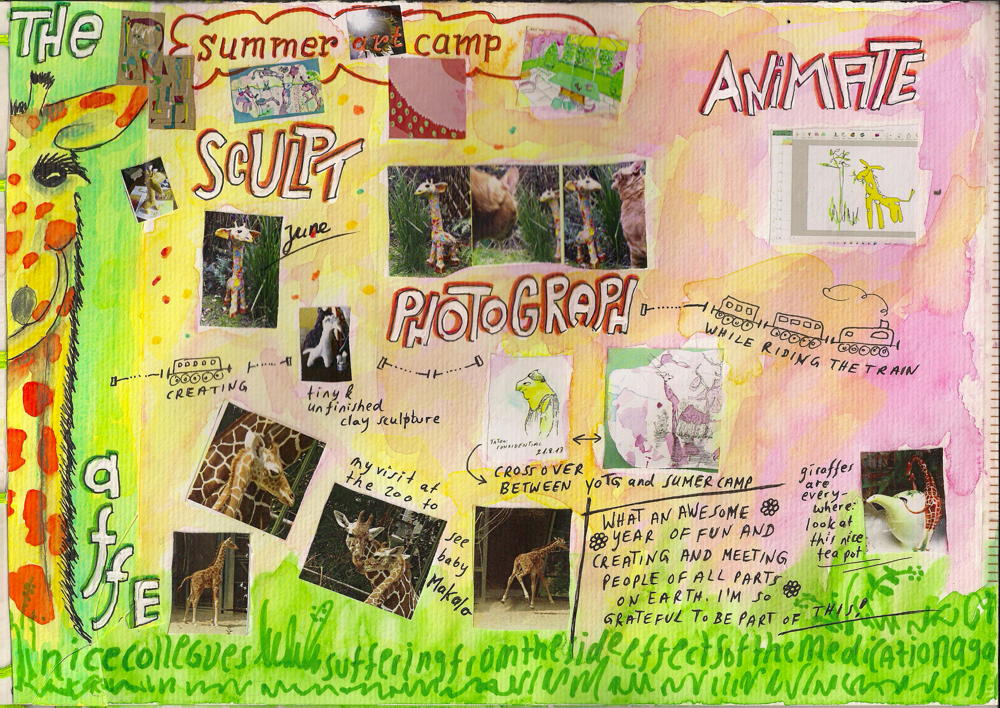 THe
summer art camp
ANiMATE
SCULPT
June
PHOTOGRAPH
WHILE RIDING THE TRAIN
CREATING
tiny &
unfinished
clay sculpture
21.8.13
CROSS OVER
BETWEEN YOTG and SUMERCAMP
my visit at
the zoo to
see
baby
Makalo
giraffes
are
every-
where:
look at
this nice
tea pot
WHAT AN AWESOME
YEAR OF FUN AND
CREATING AND MEETING
PEOPLE OF ALL PARTS
ON EARTH. I'M SO
GRATEFUL TO BE PART OF THIS!
affE
nicecollegues sufferingfromthesideEffectsofthemedicationaga